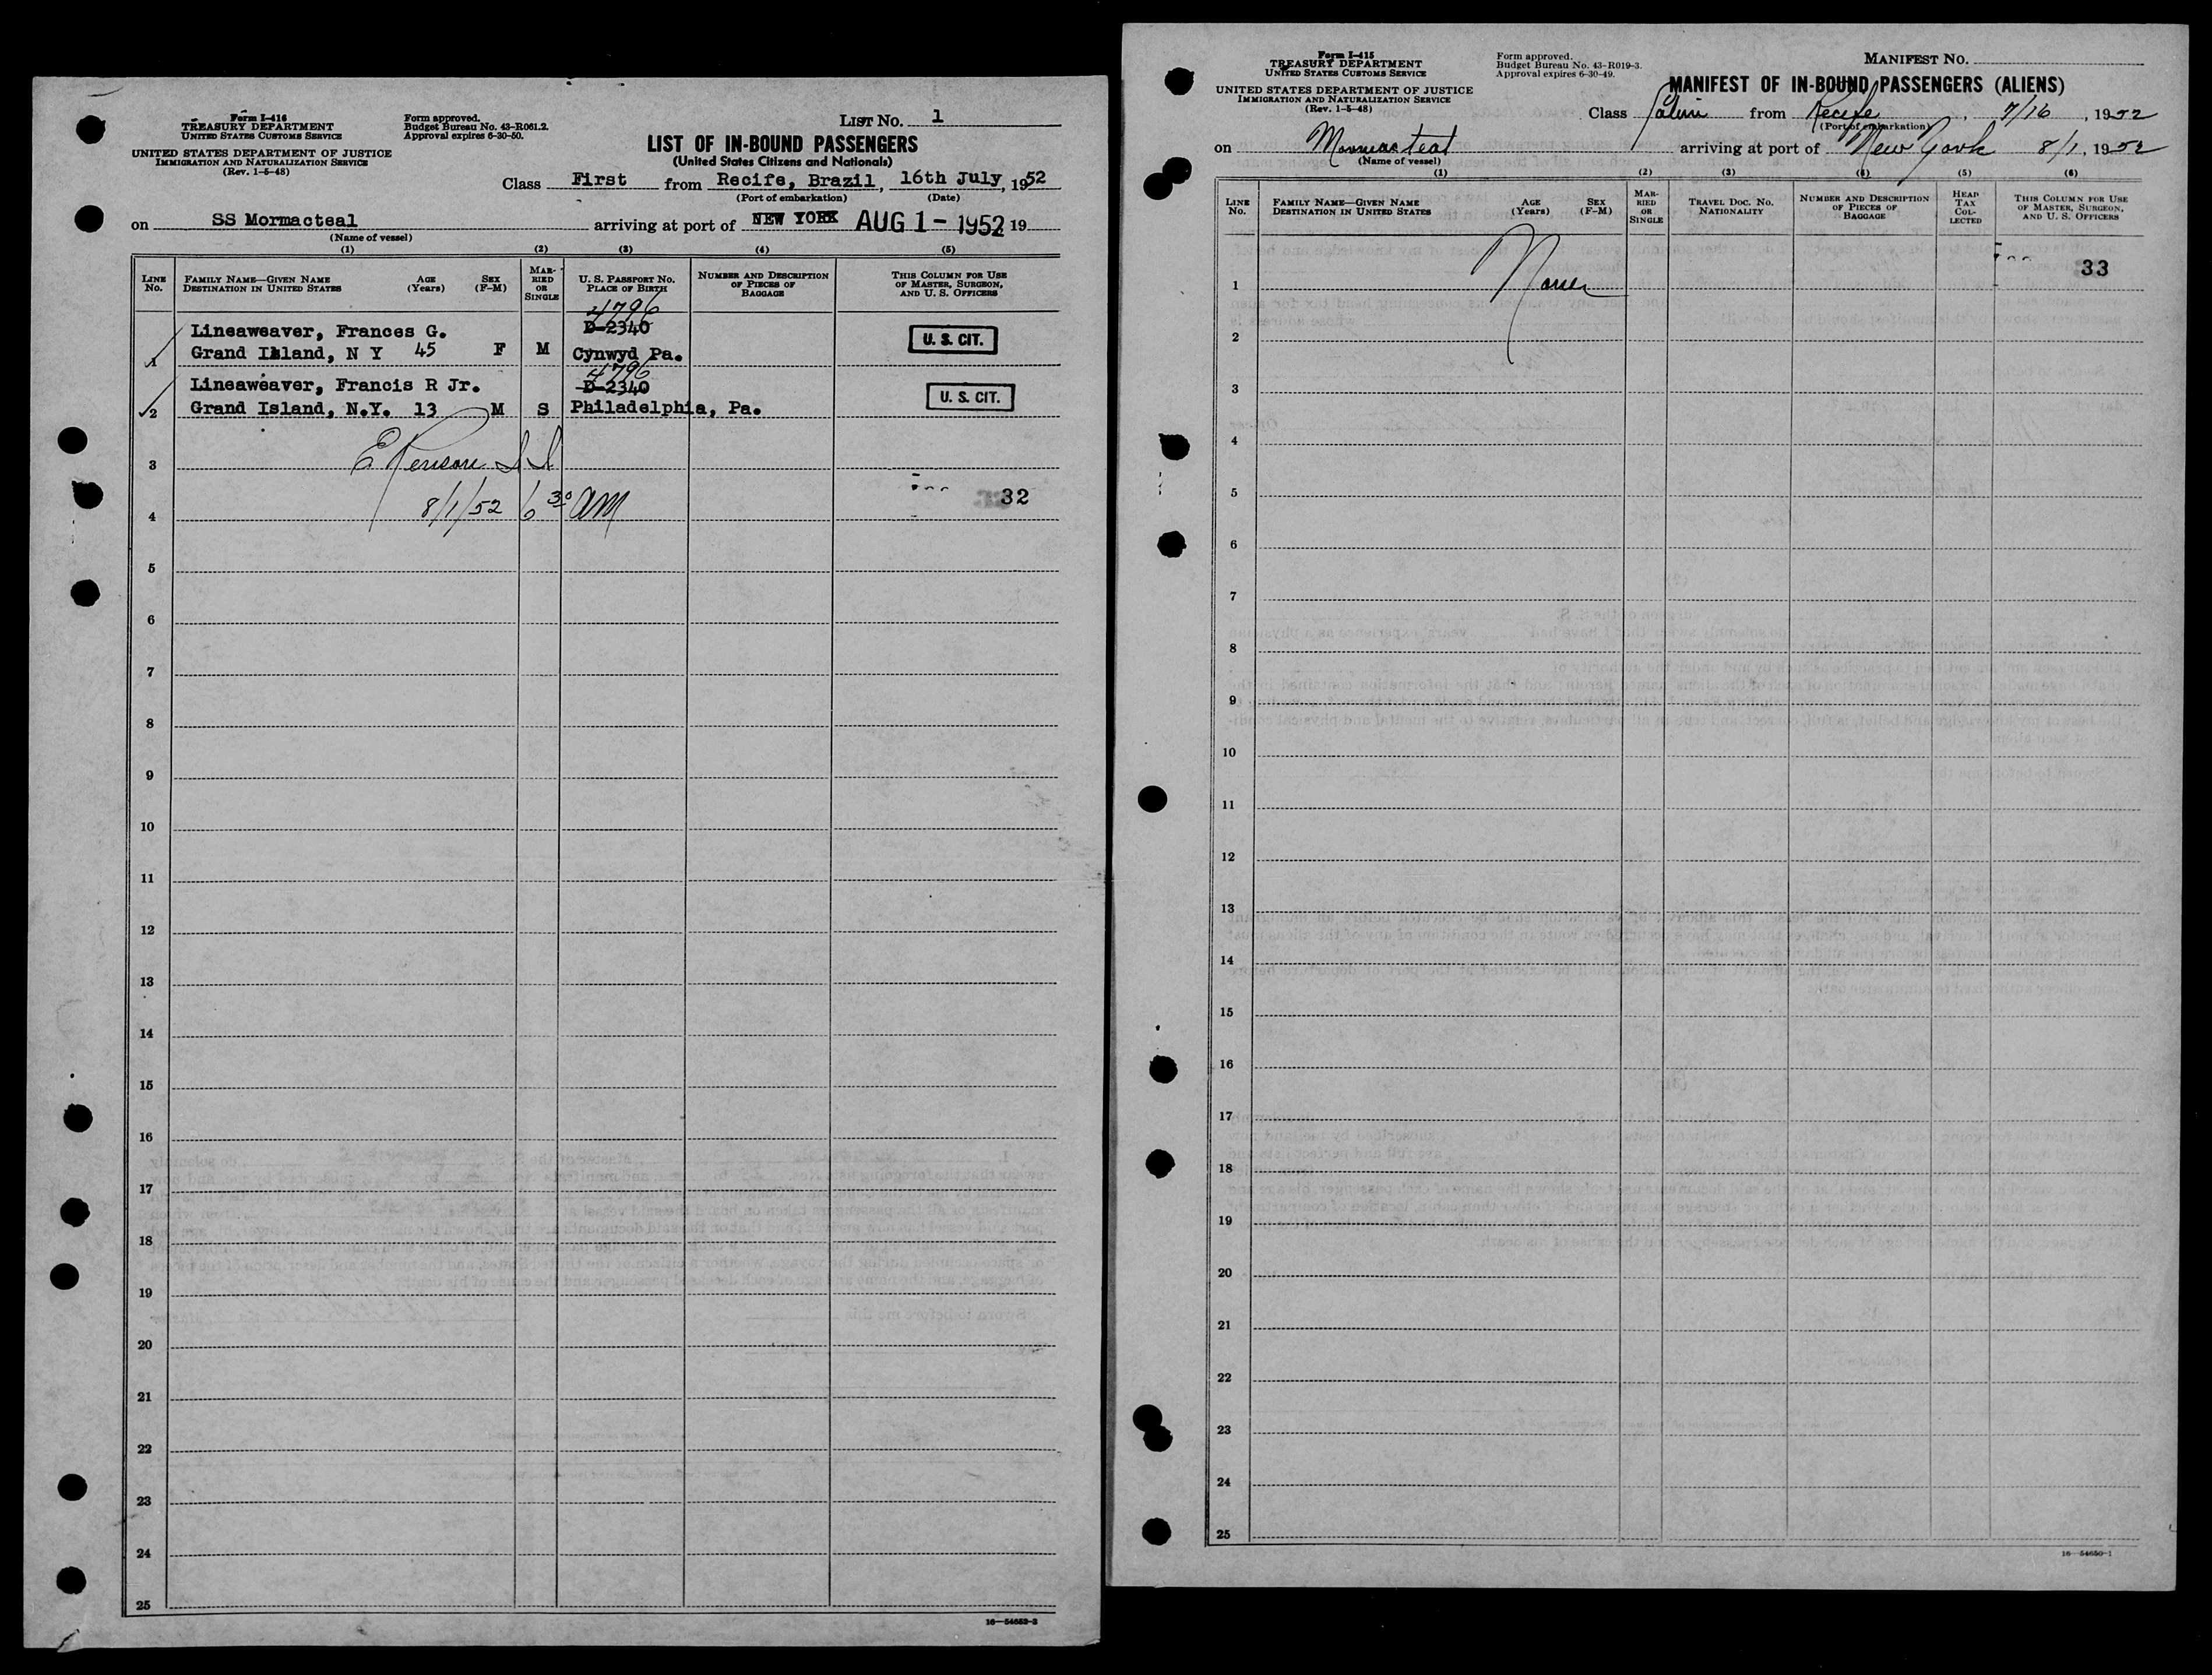 Form I-416
TREASURY DEPARTMENT
UNITED STATES CUSTOMS SERVICE
UNITED STATES DEPARTMENT OF JUSTICE
IMMIGRATION AND NATURALIZATION SERVICE
(Rev. 1-5-48)
Form approved.
Budget Bureau No. 43-R061.2.
Approval expires 6-30-50.
LIST No. 1
LIST OF IN-BOUND PASSENGERS
(United States Citizens and Nationals)
Class First from Recife, Brazil, 16th July, 1952
(Port of embarkation) (Date)
on SS Mormacteal arriving at port of NEW YORK AUG 1 - 1952 19
(Name of vessel)
(1) (2) (3) (4) (5)
LINE No. FAMILY NAME—GIVEN NAME DESTINATION IN UNITED STATES AGE (Years) SEX (F-M) MARRIED OR SINGLE U. S. PASSPORT No. PLACE OF BIRTH NUMBER AND DESCRIPTION OF PIECES OF BAGGAGE THIS COLUMN FOR USE OF MASTER, SURGEON, AND U. S. OFFICERS
4796
Lineaweaver, Frances G. D-2340
1 Grand Island, N Y 45 F M Cynwyd Pa. U. S. CIT.
4796
Lineaweaver, Francis R Jr. D-2340
2 Grand Island, N.Y. 13 M S Philadelphia, Pa. U. S. CIT.
3
8/1/52 6 30 am 32
4
5
6
7
8
9
10
11
12
13
14
15
16
17
18
19
20
21
22
23
24
25
16—54652-2
Form I-415
TREASURY DEPARTMENT
UNITED STATES CUSTOMS SERVICE
UNITED STATES DEPARTMENT OF JUSTICE
IMMIGRATION AND NATURALIZATION SERVICE
(Rev. 1-5-48)
Form approved.
Budget Bureau No. 43-R019-3.
Approval expires 6-30-49.
MANIFEST No.
MANIFEST OF IN-BOUND PASSENGERS (ALIENS)
Class Cabin from Recife, 7/16, 1952
(Port of embarkation)
on Mormacteal arriving at port of New York 8/1, 1952
(Name of vessel)
(1) (2) (3) (4) (5) (6)
LINE No. FAMILY NAME—GIVEN NAME DESTINATION IN UNITED STATES AGE (Years) SEX (F-M) MARRIED OR SINGLE TRAVEL DOC. No. NATIONALITY NUMBER AND DESCRIPTION OF PIECES OF BAGGAGE HEAD TAX COLLECTED THIS COLUMN FOR USE OF MASTER, SURGEON, AND U. S. OFFICERS
33
1 None
2
3
4
5
6
7
8
9
10
11
12
13
14
15
16
17
18
19
20
21
22
23
24
25
16—54650-1